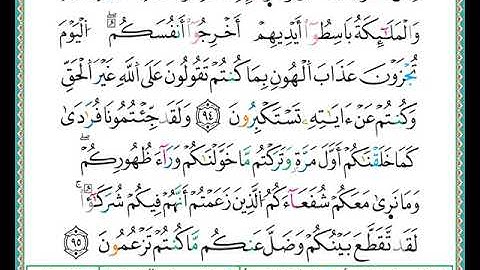 وَالْمَلَٰٓئِكَةُ بَاسِطُوٓا۟ أَيْدِيهِمْ أَخْرِجُوٓا۟ أَنفُسَكُمْ ۖ الْيَوْمَ
تُجْزَوْنَ عَذَابَ الْهُونِ بِمَا كُنتُمْ تَقُولُونَ عَلَى اللَّهِ غَيْرَ الْحَقِّ
وَكُنتُمْ عَنْ ءَايَٰتِهِۦ تَسْتَكْبِرُونَ ٩٤ وَلَقَدْ جِئْتُمُونَا فُرَٰدَىٰ
كَمَا خَلَقْنَٰكُمْ أَوَّلَ مَرَّةٍ وَتَرَكْتُم مَّا خَوَّلْنَٰكُمْ وَرَآءَ ظُهُورِكُمْ ۖ
وَمَا نَرَىٰ مَعَكُمْ شُفَعَآءَكُمُ الَّذِينَ زَعَمْتُمْ أَنَّهُمْ فِيكُمْ شُرَكَٰٓؤُا۟ ۚ
لَقَد تَّقَطَّعَ بَيْنُكُمْ وَضَلَّ عَنكُم مَّا كُنتُمْ تَزْعُمُونَ ٩٥